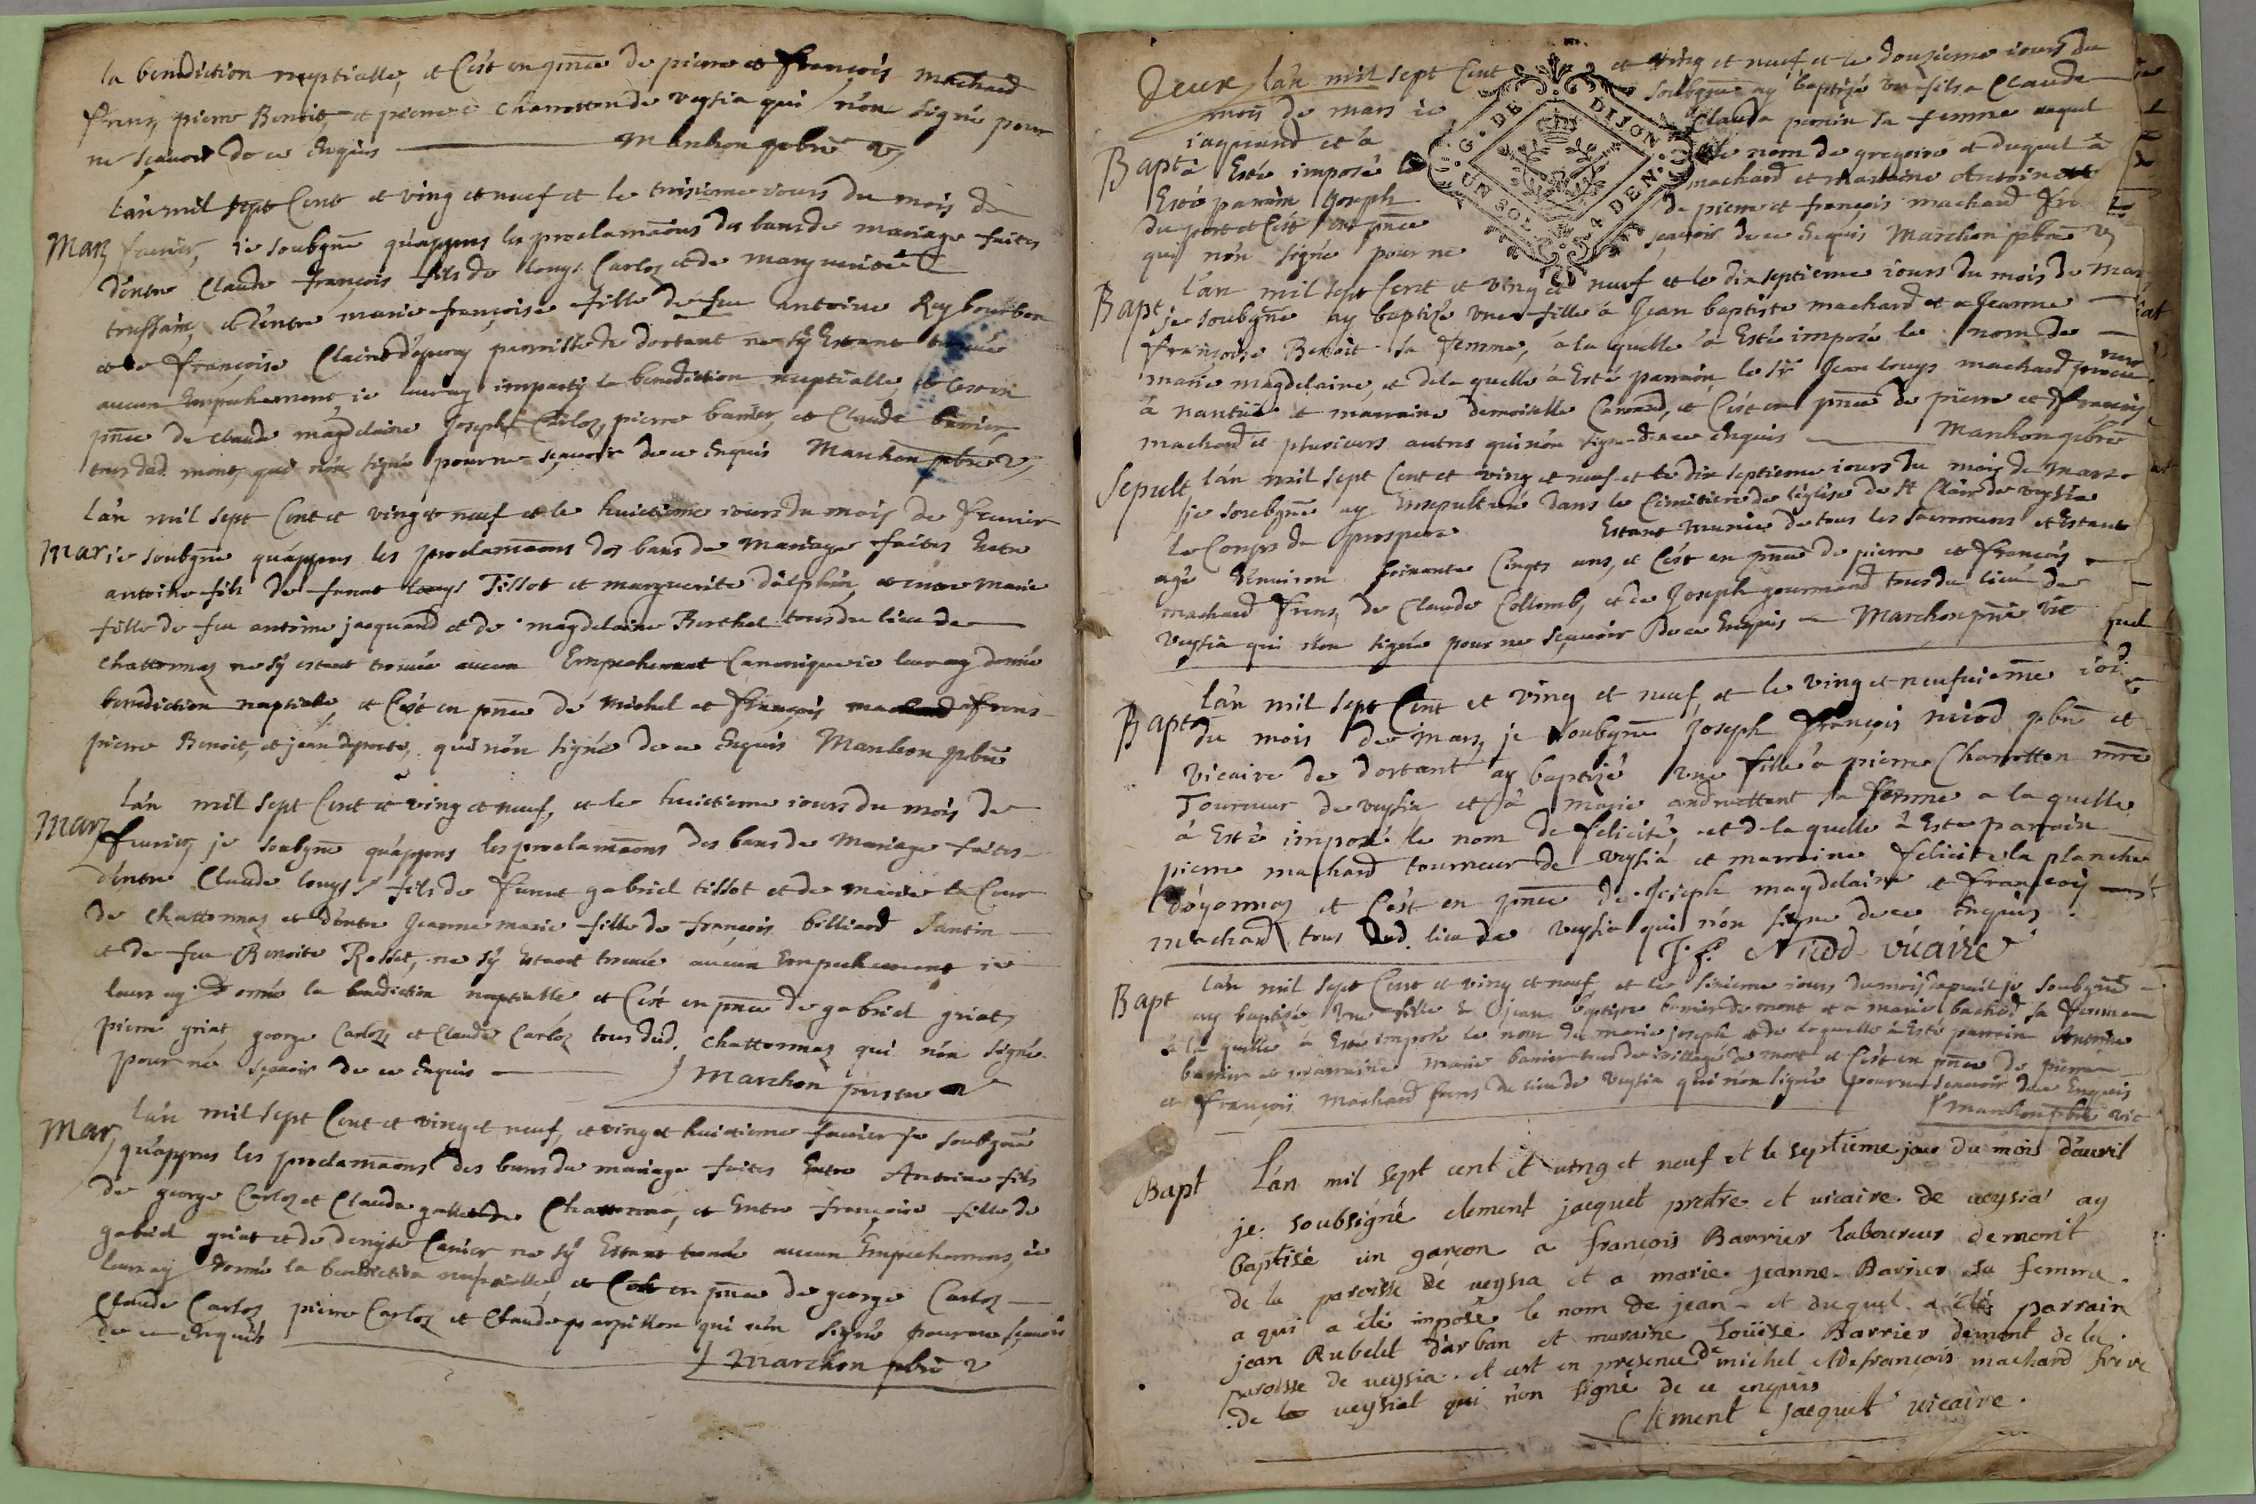 la benediction nuptialle, et C'est en pnce de pierre et françois machard
freres, pierre Benoit, et pierre charrotton de veysia qui n'on signé pour
ne sçavoir de ce Enquis Marchon pbre v
l'an mil sept Cent et ving et neuf et le troisieme iours du mois de
Mar feurier, ie soubgne qu'appres les proclamaons des bans de mariage faites
d'entre Claude françois fils de louys Carloz et de marguerite
et d'entre marie françoise fille de feu antoine Rey bourbon
et de françoise Claire d'epercy parroisse de dortant ne sÿ Estant trouué
aucun Empechement ie leur ay imparty la benediction nuptialle, et C'est en
pnce de claude magdelaine Joseph Carloz, pierre barrier, et Claude barrier
tous dud. mont, qui n'on signé pour ne sçauoir de ce Enquis Marchon pbre v
l'an mil sept Cent et ving et neuf et le huictieme iours du mois de feurier
Mar ie soubgne qu'appres les proclamaons des bans de Mariage faites Entre
antoine fils de funct louys Tissot et marguerite dalphin, et entre marie
fille de feu antoine jacquand et de magdelaine Berthet tous du lieu de
chattonnaz ne sÿ estant trouué aucun Empechement Canonique ie leur ay donné
benediction nuptialle, et C'est en pnce de Michel et françois machard freres
pierre Benoit, et jean deporte, qui n'on signé de ce Enquis Marchon pbre
l'an mil sept Cent et ving et neuf, et le huictieme iours du mois de
Mar feurier, je soubgne qu'appres les proclamaons des bans de Mariage faites
d'entre Claude louys fils de funct gabriel tissot et de marie la Cour
de chattonnaz et d'entre Jeanne marie fille de françois billiard Santin
et de feu Benoite Rosset, ne sÿ Estant trouué aucun Empechement ie
leur ay donné la benediction nuptialle et C'est en pnce de gabriel griat,
pierre griat, george Carloz, et Claude Carloz tous dud. chattonnaz qui n'on signé
pour ne sçavoir de ce Enquis Marchon prestre v
l'an mil sept Cent et ving et neuf, et ving et huictieme feurier je soubgné
Mar qu'appres les proclamaons des bans de mariage faites Entre Antoine fils
de george Carloz et Clauda de Chattonna, et Entre françoise fille de
gabriel griat et de denyse Carrier ne sÿ Estant trouué aucun Empechement, ie
leur ay donné la benediction nuptialle, et C'est en pnce de george Carloz
Claude Carloz pierre Carloz et Claude parpillon qui n'on signé pour ne sçauoir
de ce Enquis
Marchon pbre v
Deux l'an mil sept Cent et ving et neuf et le douzieme iours du
mois de mars ie soubgne ay baptizé un fils a Claude
jaquand et à Clauda perrin sa femme auquel
Bapt à Esté imposé le nom de gregoire et duquel à
Esté parrain Joseph machard et marraine Antoinette
du port et C'est en pnce de pierre et françois machard
qui n'on signé pour ne sçavoir de ce Enquis Marchon pbre v
G. DE DIJON
UN SOL 4 DEN.
l'an mil sept Cent et ving et neuf et le dix septieme iours du mois de Mar
Bapt je soubgne ay baptizé une fille à Jean baptiste machard et a Jeanne
françoise Benoit sa femme, à la quelle à Esté imposé le nom de
marie magdelaine, et de la quelle à Esté parrain le Sr Jean louys machard
à nantua et marraine demoiselle Carrard, et C'est en pnce de pierre et françois
machard et plusieurs autres qui n'on signé de ce enquis Marchon pbre
Sepult l'an mil sept Cent et ving et neuf et le dix septieme iours du mois de mars
je soubgne ay Ensepulturé dans le Cimetiere de l'église de St Clair de veysia
le Corps de prospere Estant munie de tous les sacremens et Estant
agé d'Enuiron soixante Cinqts ans, et C'est en pnce de pierre et françois
machard freres, de Claude Collomb, et de Joseph gourmand tous du lieu de
veysia qui n'on signé pour ne sçavoir de ce Enquis Marchon pbre vic
l'an mil sept Cent et ving et neuf, et le ving et neufuieme
Bapt du mois de mars, je soubgne Joseph François niod pbre et
vicaire de dortant ay baptizé une fille à pierre Charrotton mre
Tourneur de veysia, et à marie andruettant sa femme a la quelle
à Esté imposé le nom de felicité, et de la quelle à Esté parrain
pierre machard tourneur de veysia et marraine felicite la planche
d'oyonnaz et C'est en pnce de Joseph magdelaine et françois
machard, tous dud. lieu de veysia qui n'on signe de ce Enquis.
J. f. Niod vicaire
l'an mil sept Cent et ving et neuf, et le sixieme iours du mois d'apuril je soubgne
Bapt ay baptizé une fille à jean baptiste barrier de mont et a marie bachod sa femme
à la quelle à Esté imposé le nom de marie joseph et de la quelle à Esté parrain Antoine
barrier et marraine Marie barrier tous du village de mont et C'est en pnce de pierre
et françois Machard freres du lieu de veysia qui n'on signé pour ne scauoir de ce Enquis
Marchon pbre vic
Bapt L'an mil sept cent et ving et neuf et le septieme jour du mois d'auril
je soubsigné clement jacquet pretre et uicaire de ueysia ay
baptisé un garçon a françois Barrier laboureur de mont
de la paroisse de ueysia et a marie jeanne Barrier sa femme.
a qui a été imposé le nom de jean et duquel a été parrain
jean Rubelet d'arban et maraine Loüise Barrier de mont de la
paroisse de ueysia. et est en presence de michel et de françois machard frere
de ueysiat qui n'on signé de ce enquis
Clement jacquet uicaire.